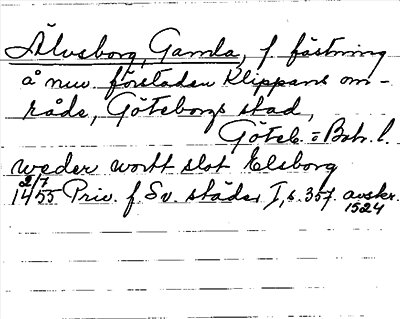 Älvsborg, Gamla, f fästning
å nuv förstaden Klippans om-
råde, Göteborgs stad,
Göteb. o Boh. l.
weder wortt slot Elsborg
2/7 1455 Priv. f. Sv. städer I, s. 357. avskr. 1524